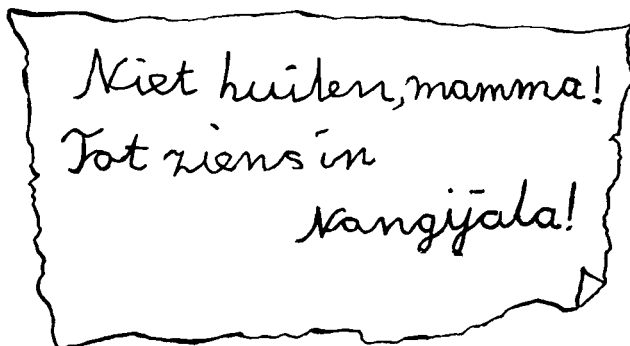 Niet huilen, mamma!
Tot ziens in
Nangijala!